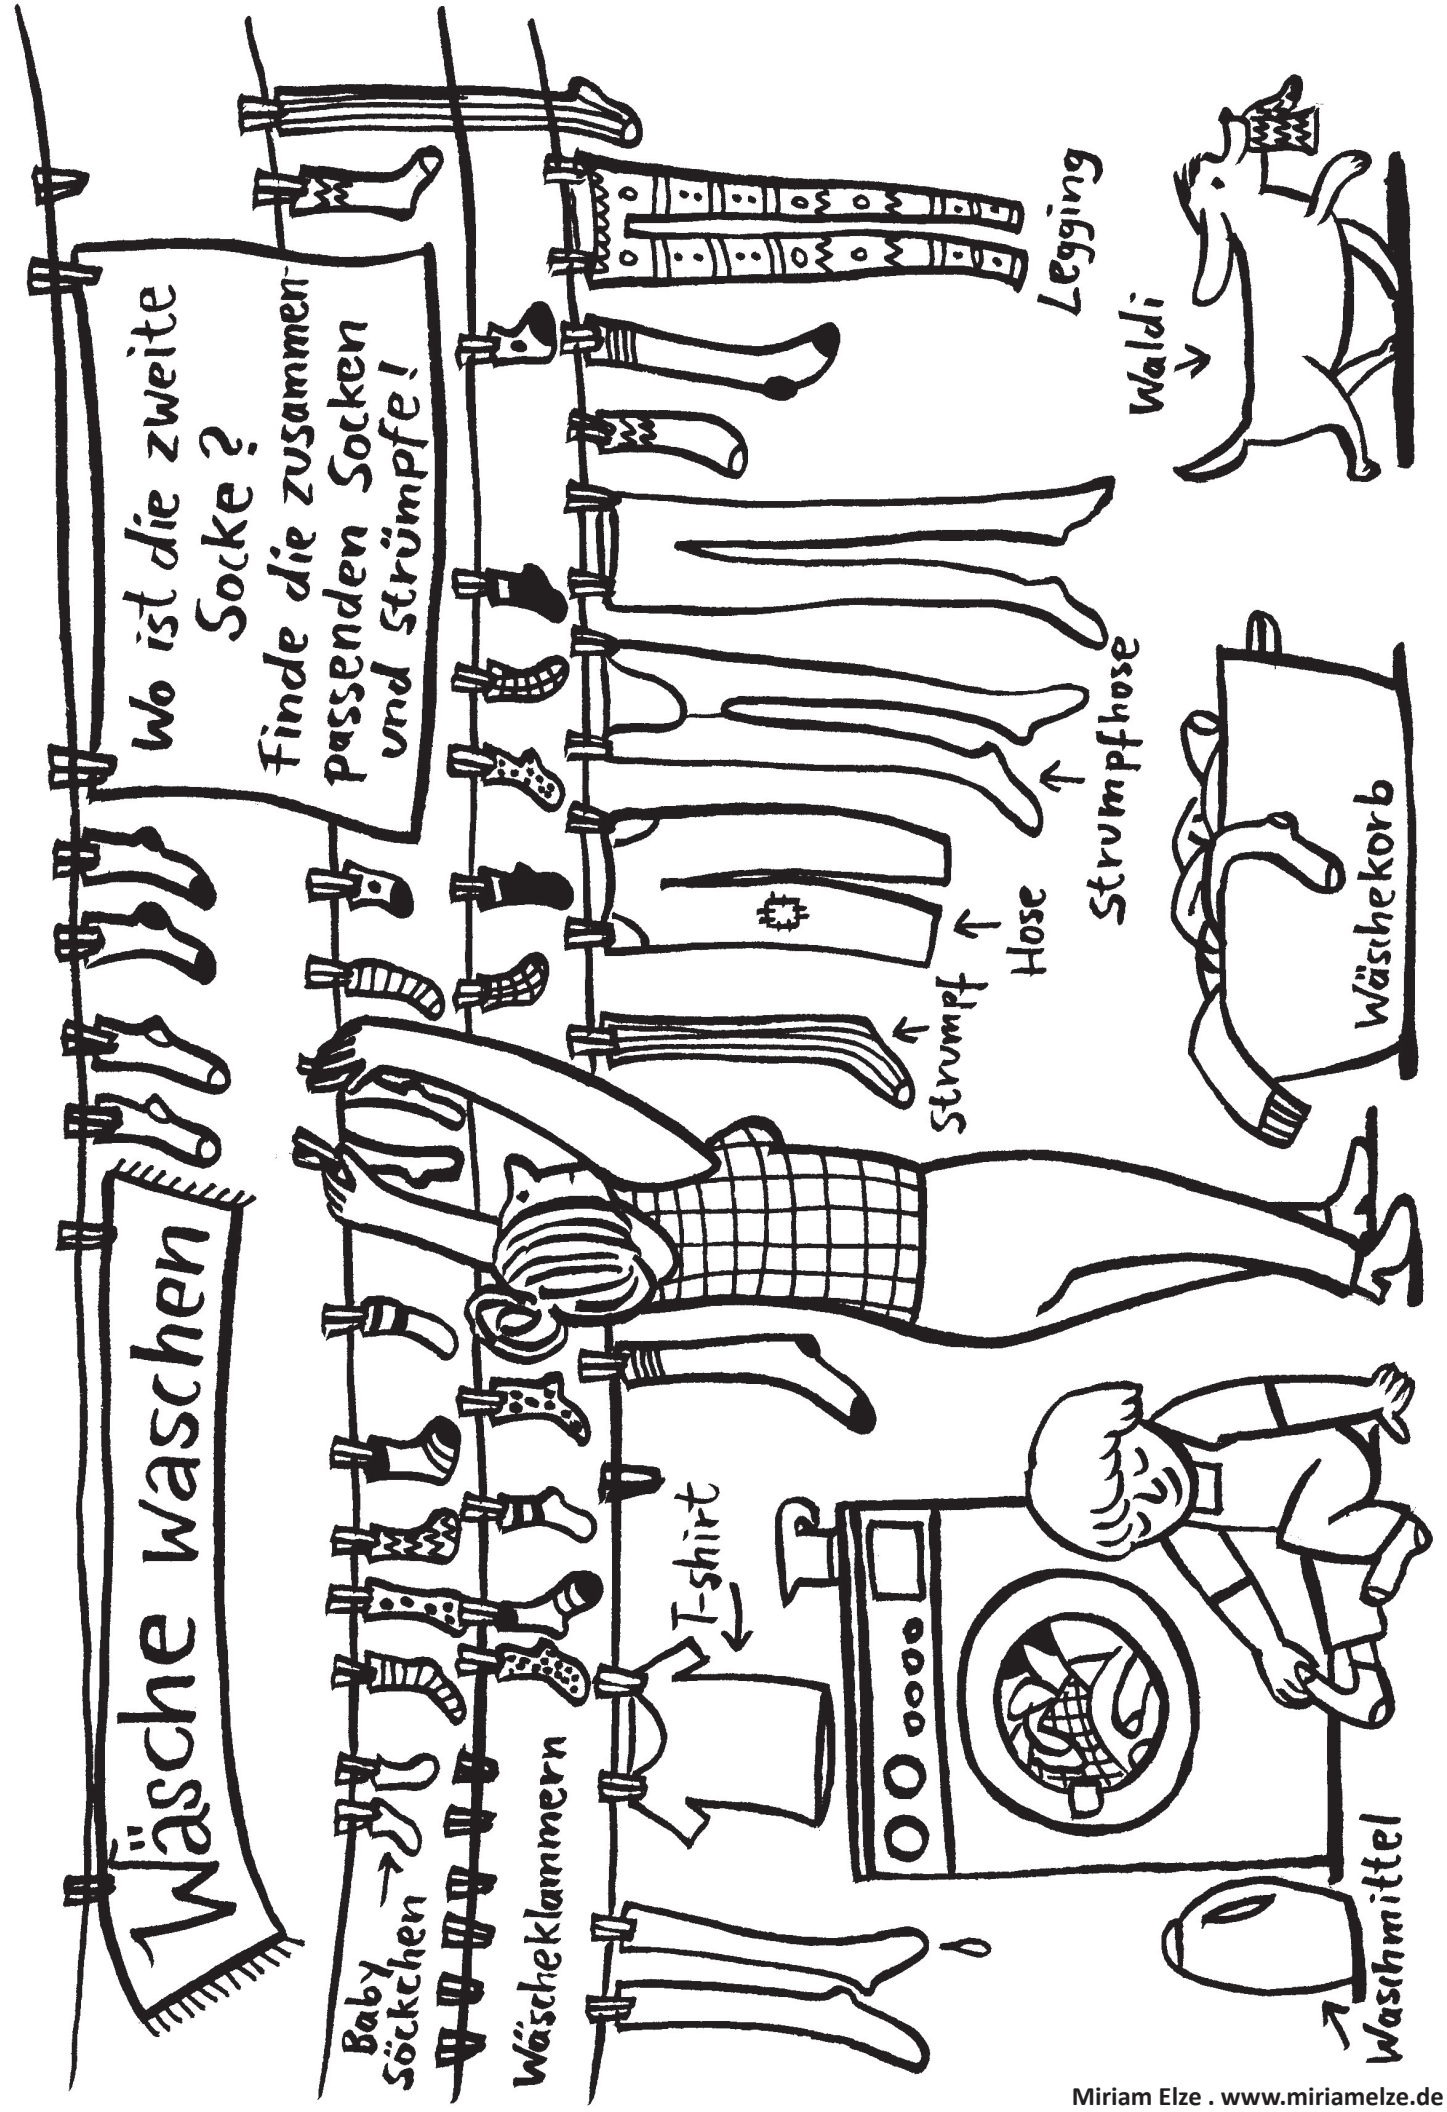 Wäsche waschen
Wo ist die zweite
Socke?
Finde die zusammen-
passenden Socken
und Strümpfe!
Baby
Söckchen
Wäscheklammern
T-shirt
Strumpf
Hose
Strumpfhose
Legging
Waldi
Wäschekorb
Waschmittel
Miriam Elze . www.miriamelze.de